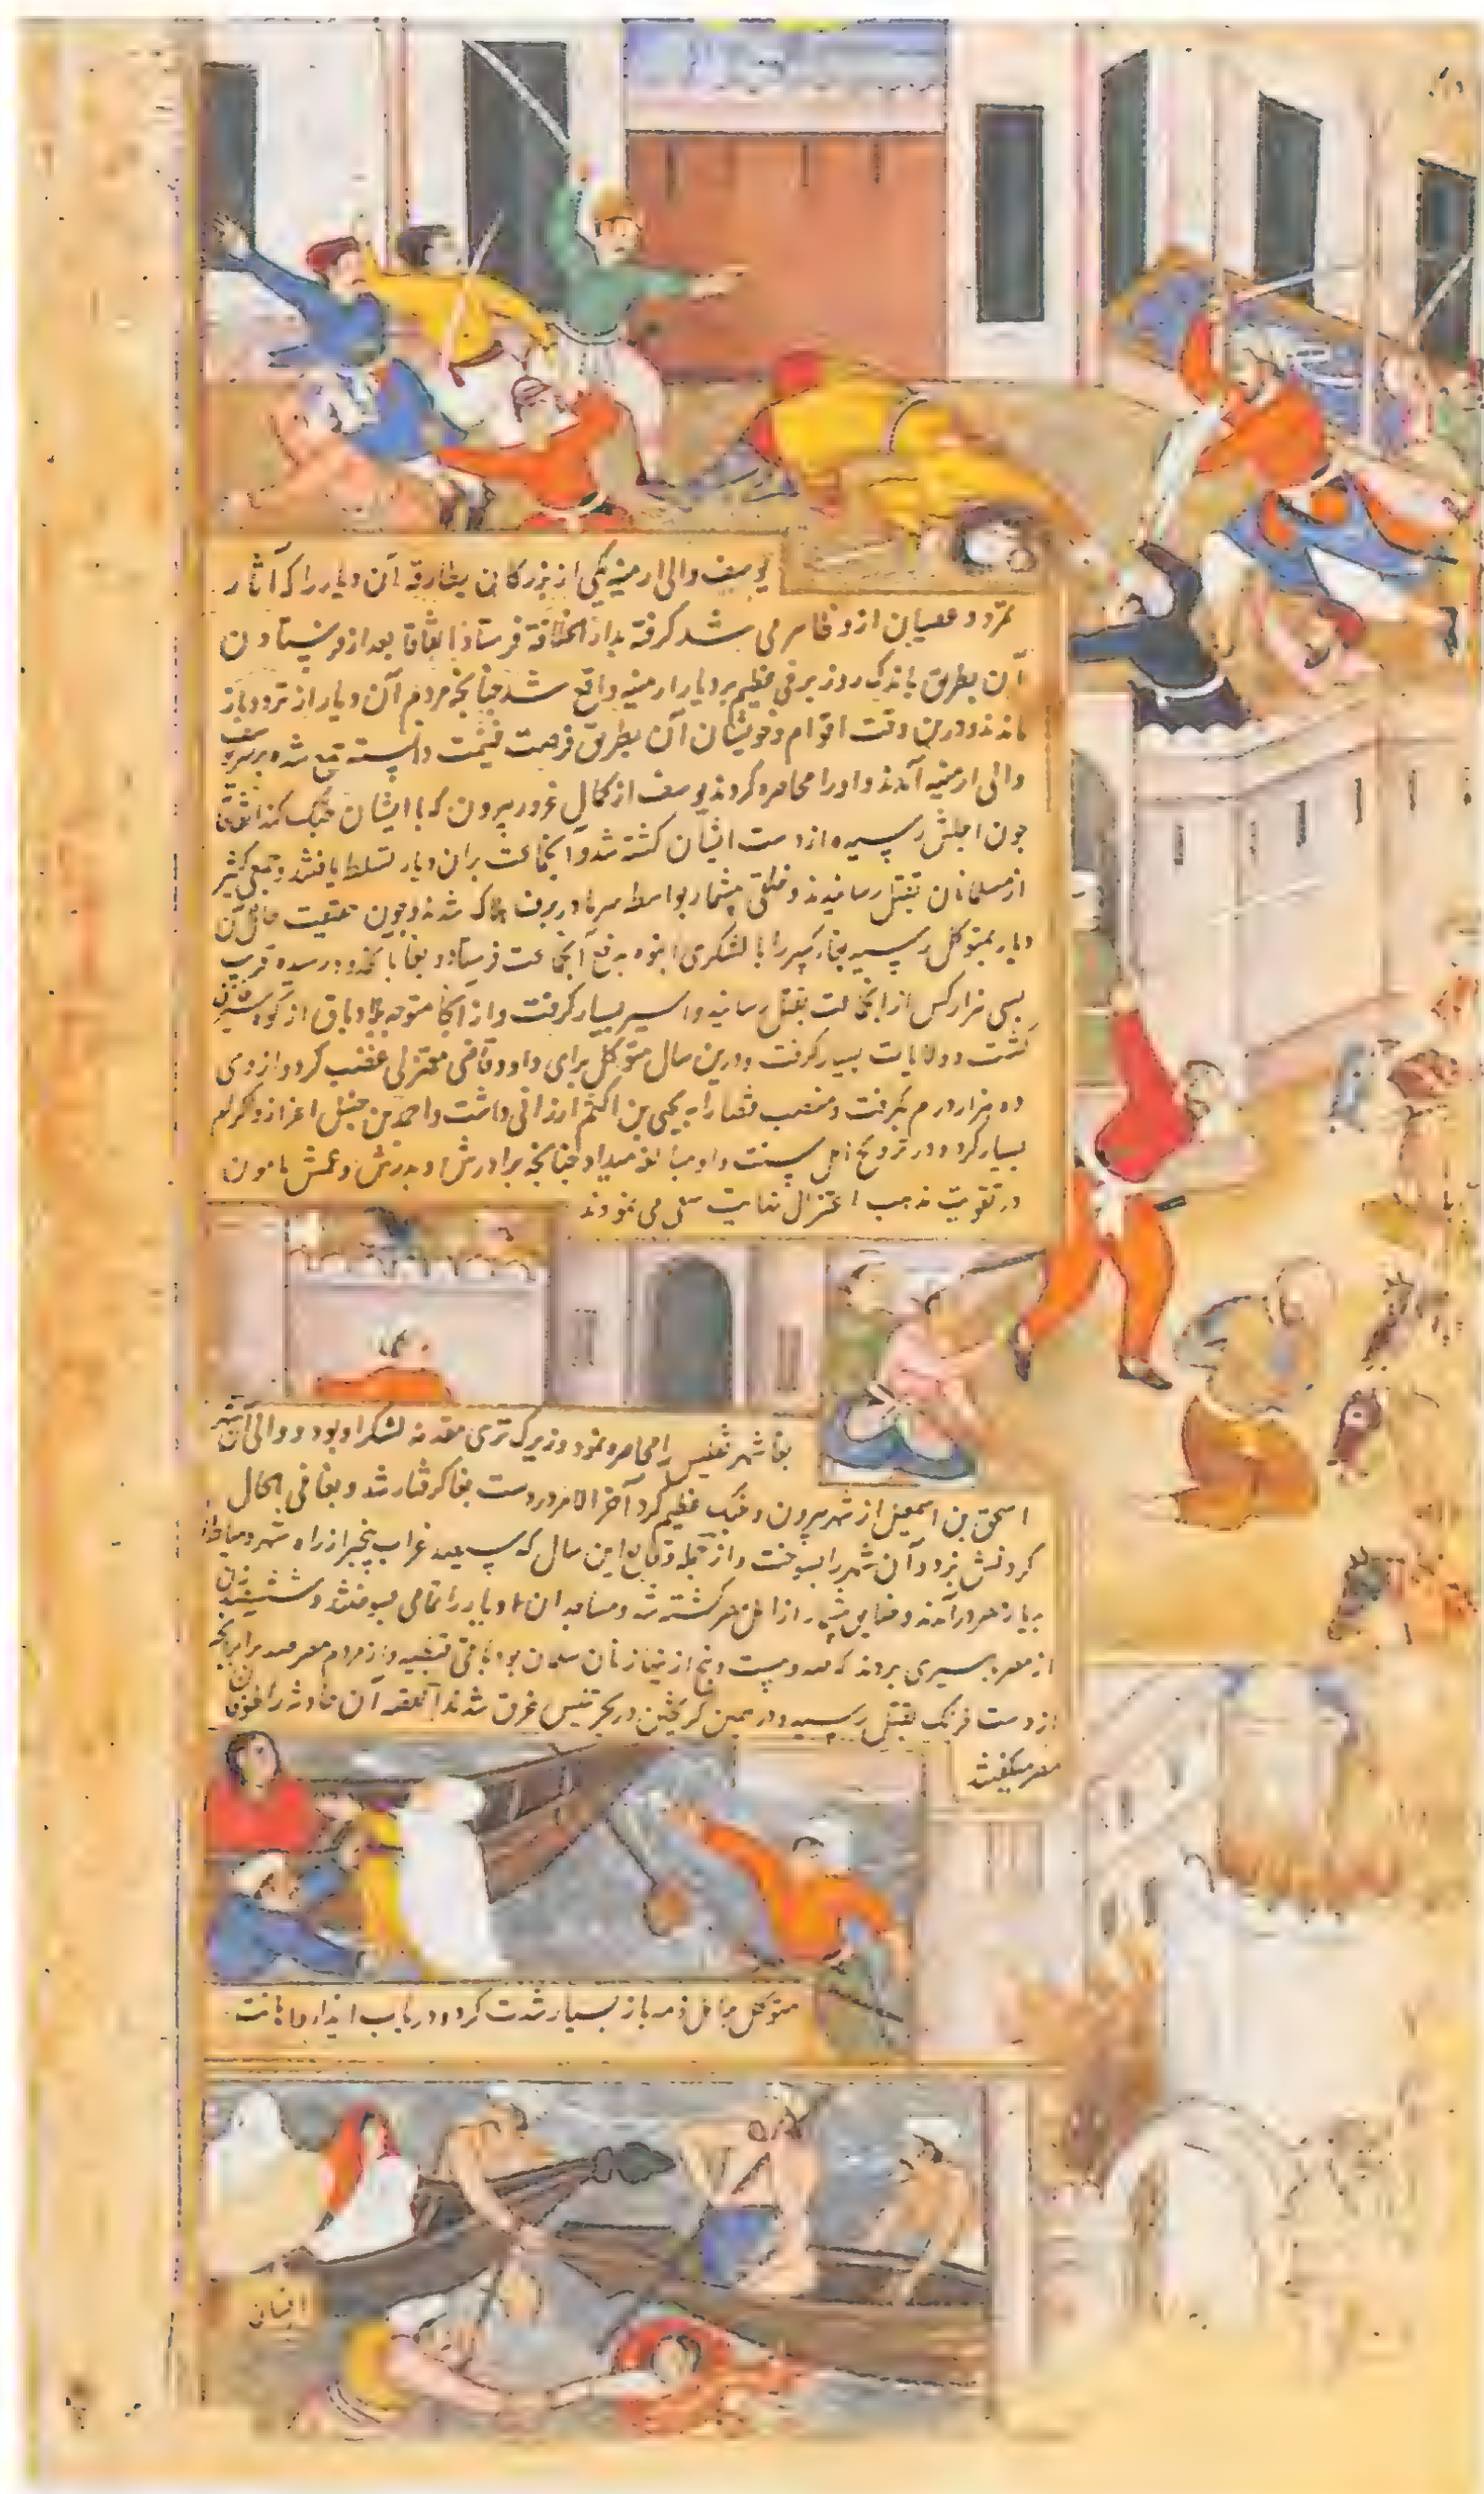 یوسف والی ارمنیه یکی از بزرکان بطارقه آن دیار را که آثار
تمرد و عصیان ازو ظاهر می شد کرفته بدار الخلافة فرستاد اتفاقا بعد از فرستادن
آن بطریق باندک روز برفی عظیم بر دیار ارمنیه واقع شد جنانجه مردم آن دیار از تردد باز
ماندند و درین وقت اقوام و خویشان آن بطریق فرصت غنیمت دانسته جمع شده بر سر یوسف
والی ارمنیه آمدند و او را محاصره کردند یوسف از کمال غرور بیرون که با ایشان جنک کند اتفاقا
جون اجلش رسیده از دست ایشان کشته شد و آن جماعت بران دیار تسلط یافتند و جمعی کثیر
از مسلمانان بقتل رسانیدند و خلقی بیشمار بواسطه سرما در برف هلاک شدند و جون حقیقت حال آن
دیار بمتوکل رسید بغا کبیر را با لشکری انبوه بدفع آن جماعت فرستاد و بغا بانحدود رسیده قریب
بسی هزار کس از انجماعت بقتل رسانید و اسیر بسیار کرفت و از آنجا متوجه بلاد باق از کور
کشت و ولایات بسیار کرفت و درین سال متوکل برای داود قاضی معتزلی غضب کرد و از وی
ده هزار درم بکرفت و منصب قضا را به یحیی بن اکثم ارزانی داشت و احمد بن حنبل اعزاز و اکرام
بسیار کرد و در ترویج اهل سنت داد مبالغه میداد جنانجه برادرش و بدرش و عمش مامون
در تقویت مذهب اعتزال نهایت سعی می نمودند
بغا شهر تفلیس را محاصره نمود و زیرک ترکی مقدمه لشکر او بود و والی آن شهر
اسحق بن اسمعیل از شهر بیرون و جنک عظیم کرد آخر الامر در دست بغا کرفتار شد و بغا فی الحال
کردنش بزد و آن شهر را بسوخت و از جمله وقایع این سال که سیصد غراب بیخبر از راه شهر دمیاط از
بدیار مصر درآمدند و خلایق بیشمار از اهل مصر کشته شد و مساجد ان دیار را تمامی بسوختند و ششصد زن
از مصر باسیری بردند که صد و بیست و پنج از نیها زنان مسلمان بود باقی قبطیه و از مردم مصر صد برابر انجه
از دست فرنک بقتل رسیده در حین کریختن در بحر تنیس غرق شدند القصه آن حادثه را
مصر میکفتند
متوکل بر اهل ذمه باز بسیار شدت کرد و در باب ایذا و اهانت
ایشان